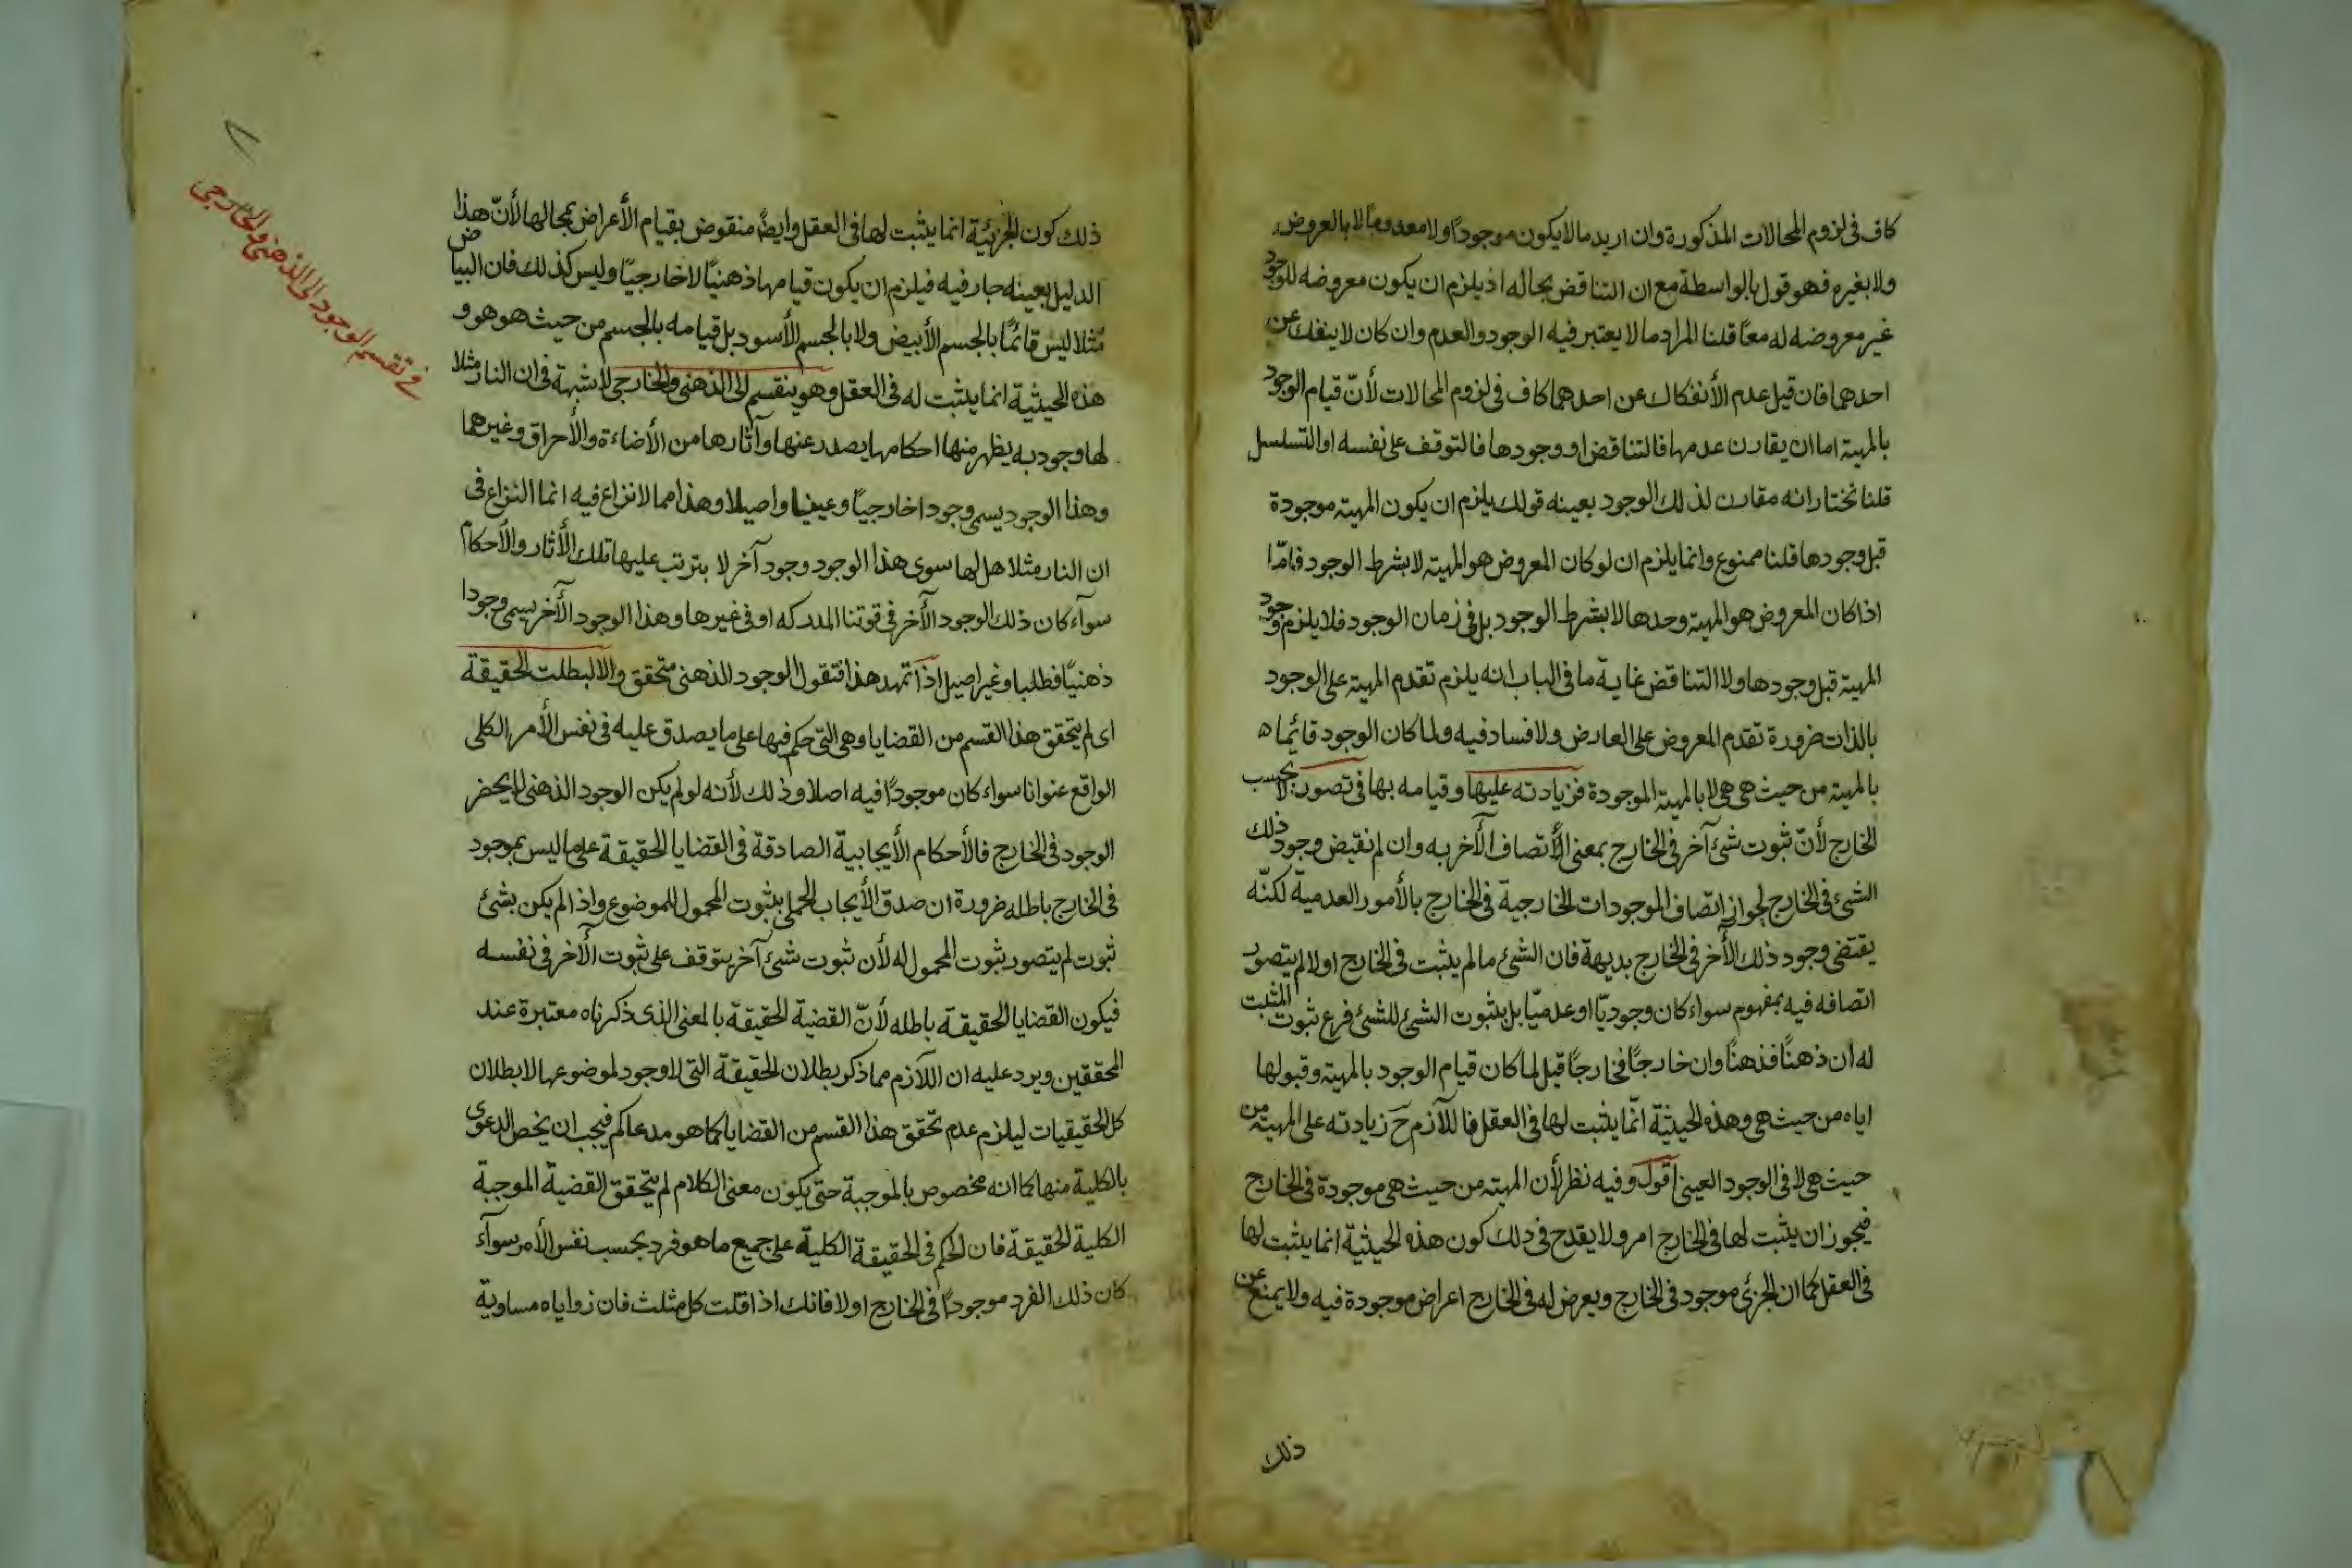 كاف فى لزوم المحالات المذكورة وان اريد مالا يكون موجودًا ولا معدومًا لا بالعروض
ولا بغيره فهو قول بالواسطة مع ان التناقض بحاله اذ يلزم ان يكون معروضه للوجود
غير معروضه له معًا قلنا المراد ما لا يعتبر فيه الوجود والعدم وان كان لا ينفك عن
احدهما فان قيل عدم الأنفكاك عن احدهما كاف فى لزوم المحالات لأنّ قيام الوجود
بالمهية اما ان يقارن عدمها فالتناقض او وجودها فالتوقف على نفسه او التسلسل
قلنا نختار انه مقارن لذلك الوجود بعينه قولك يلزم ان يكون المهية موجودة
قبل وجودها قلنا ممنوع وانما يلزم ان لو كان المعروض هو المهية لا بشرط الوجود فامّا
اذا كان المعروض هو المهية وحدها لا بشرط الوجود بل فى زمان الوجود فلا يلزم وجود
المهية قبل وجودها ولا التناقض غاية ما فى الباب انه يلزم تقدم المهية على الوجود
بالذات ضرورة تقدم المعروض على العارض ولا فساد فيه ولما كان الوجود قائما
بالمهية من حيث هى هى لا بالمهية الموجودة فزيادته عليها وقيامه بها فى تصور لا بحسب
الخارج لأنّ ثبوت شئ آخر فى الخارج بمعنى الأتصاف الآخر به وان لم نقيض وجود ذلك
الشئ فى الخارج لجواز اتصاف الموجودات الخارجية فى الخارج بالأمور العدمية لكنّه
يقتضى وجود ذلك الأخر فى الخارج بديهة فان الشئ ما لم يثبت فى الخارج اولا لم يتصور
اتصافه فيه بمفهوم سواء كان وجوديّا او عدميّا بل بثبوت الشئ للشئ فرع ثبوت المثبت
له ان ذهنًا فذهنًا وان خارجًا فخارجًا قيل لما كان قيام الوجود بالمهية وقبولها
اياه من حيث هى وهذه الحيثية انّما يثبت لها فى العقل فاللآزم ح زيادته على المهية من
حيث هى لا فى الوجود العينى اقول وفيه نظر لأن المهية من حيث هى موجودة فى الخارج
فيجوز ان يثبت لها فى الخارج امر ولا يقدح فى ذلك كون هذه الحيثية انما يثبت لها
فى العقل كما ان الجزئى موجود فى الخارج ويعرض له فى الخارج اعراض موجودة فيه ولا يمنع عن
ذلك
٨
فى تقسيم الوجود الى الذهنى والخارجى
ذلك كون الجزئية انما يثبت لها فى العقل وايضًا منقوض بقيام الأعراض بمحالها لأنّ هذا
الدليل بعينه جار فيه فيلزم ان يكون قيامها ذهنيّا لا خارجيّا وليس كذلك فان البياض
مثلا ليس قائمًا بالجسم الأبيض ولا بالجسم الأسود بل قيامه بالجسم من حيث هو هو و
هذه الحيثية انما يثبت له فى العقل وهو ينقسم الى الذهنى والخارجى لا شبهة فى ان النار مثلا
لها وجود به يظهر منها احكامها يصدر عنها وآثارها من الأضاءة والأحراق وغيرهما
وهذا الوجود يسمى وجودا خارجيّا وعينيا واصيلا وهذا مما لا نزاع فيه انما النزاع فى
ان النار مثلا هل لها سوى هذا الوجود وجود آخر لا يترتب عليها تلك الأثار والأحكام
سوآء كان ذلك الوجود الأخر فى قوتنا المدركه او فى غيرها وهذا الوجود الأخر يسمى وجودا
ذهنيّا وظليا وغير اصيل اذا تمهد هذا فنقول الوجود الذهنى متحقق والا لبطلت الحقيقة
اى لم يتحقق هذا القسم من القضايا وهى التى حكم فيها على ما يصدق عليه فى نفس الأمر الكلى
الواقع عنوانا سواء كان موجودًا فيه اصلا وذلك لأنه لو لم يكن الوجود الذهنى لانحصر
الوجود فى الخارج فالأحكام الأيجابية الصادقة فى القضايا الحقيقة على ما ليس بموجود
فى الخارج باطله ضرورة ان صدق الأيجاب الحملى بثبوت المحمول للموضوع واذا لم يكن بشئ
ثبوت لم يتصور ثبوت المحمول له لأن ثبوت شئ آخر يتوقف على ثبوت الآخر فى نفسه
فيكون القضايا الحقيقة باطله لأنّ القضية الحقيقة بالمعنى الذى ذكرناه معتبرة عند
المحققين ويرد عليه ان اللآزم مما ذكر بطلان الحقيقة التى لا وجود لموضوعها لا بطلان
كل الحقيقيات ليلزم عدم تحقق هذا القسم من القضايا كما هو مدعاكم فيجب ان يخص الدعوى
بالكلية منها كما انه مخصوص بالموجبة حتى يكون معنى الكلام لم يتحقق القضية الموجبة
الكلية الحقيقة فان الحكم فى الحقيقة الكلية على جميع ما هو فرد بحسب نفس الأمر سوآء
كان ذلك الفرد موجودًا فى الخارج او لا فانك اذا قلت كل مثلث فان زواياه مساوية